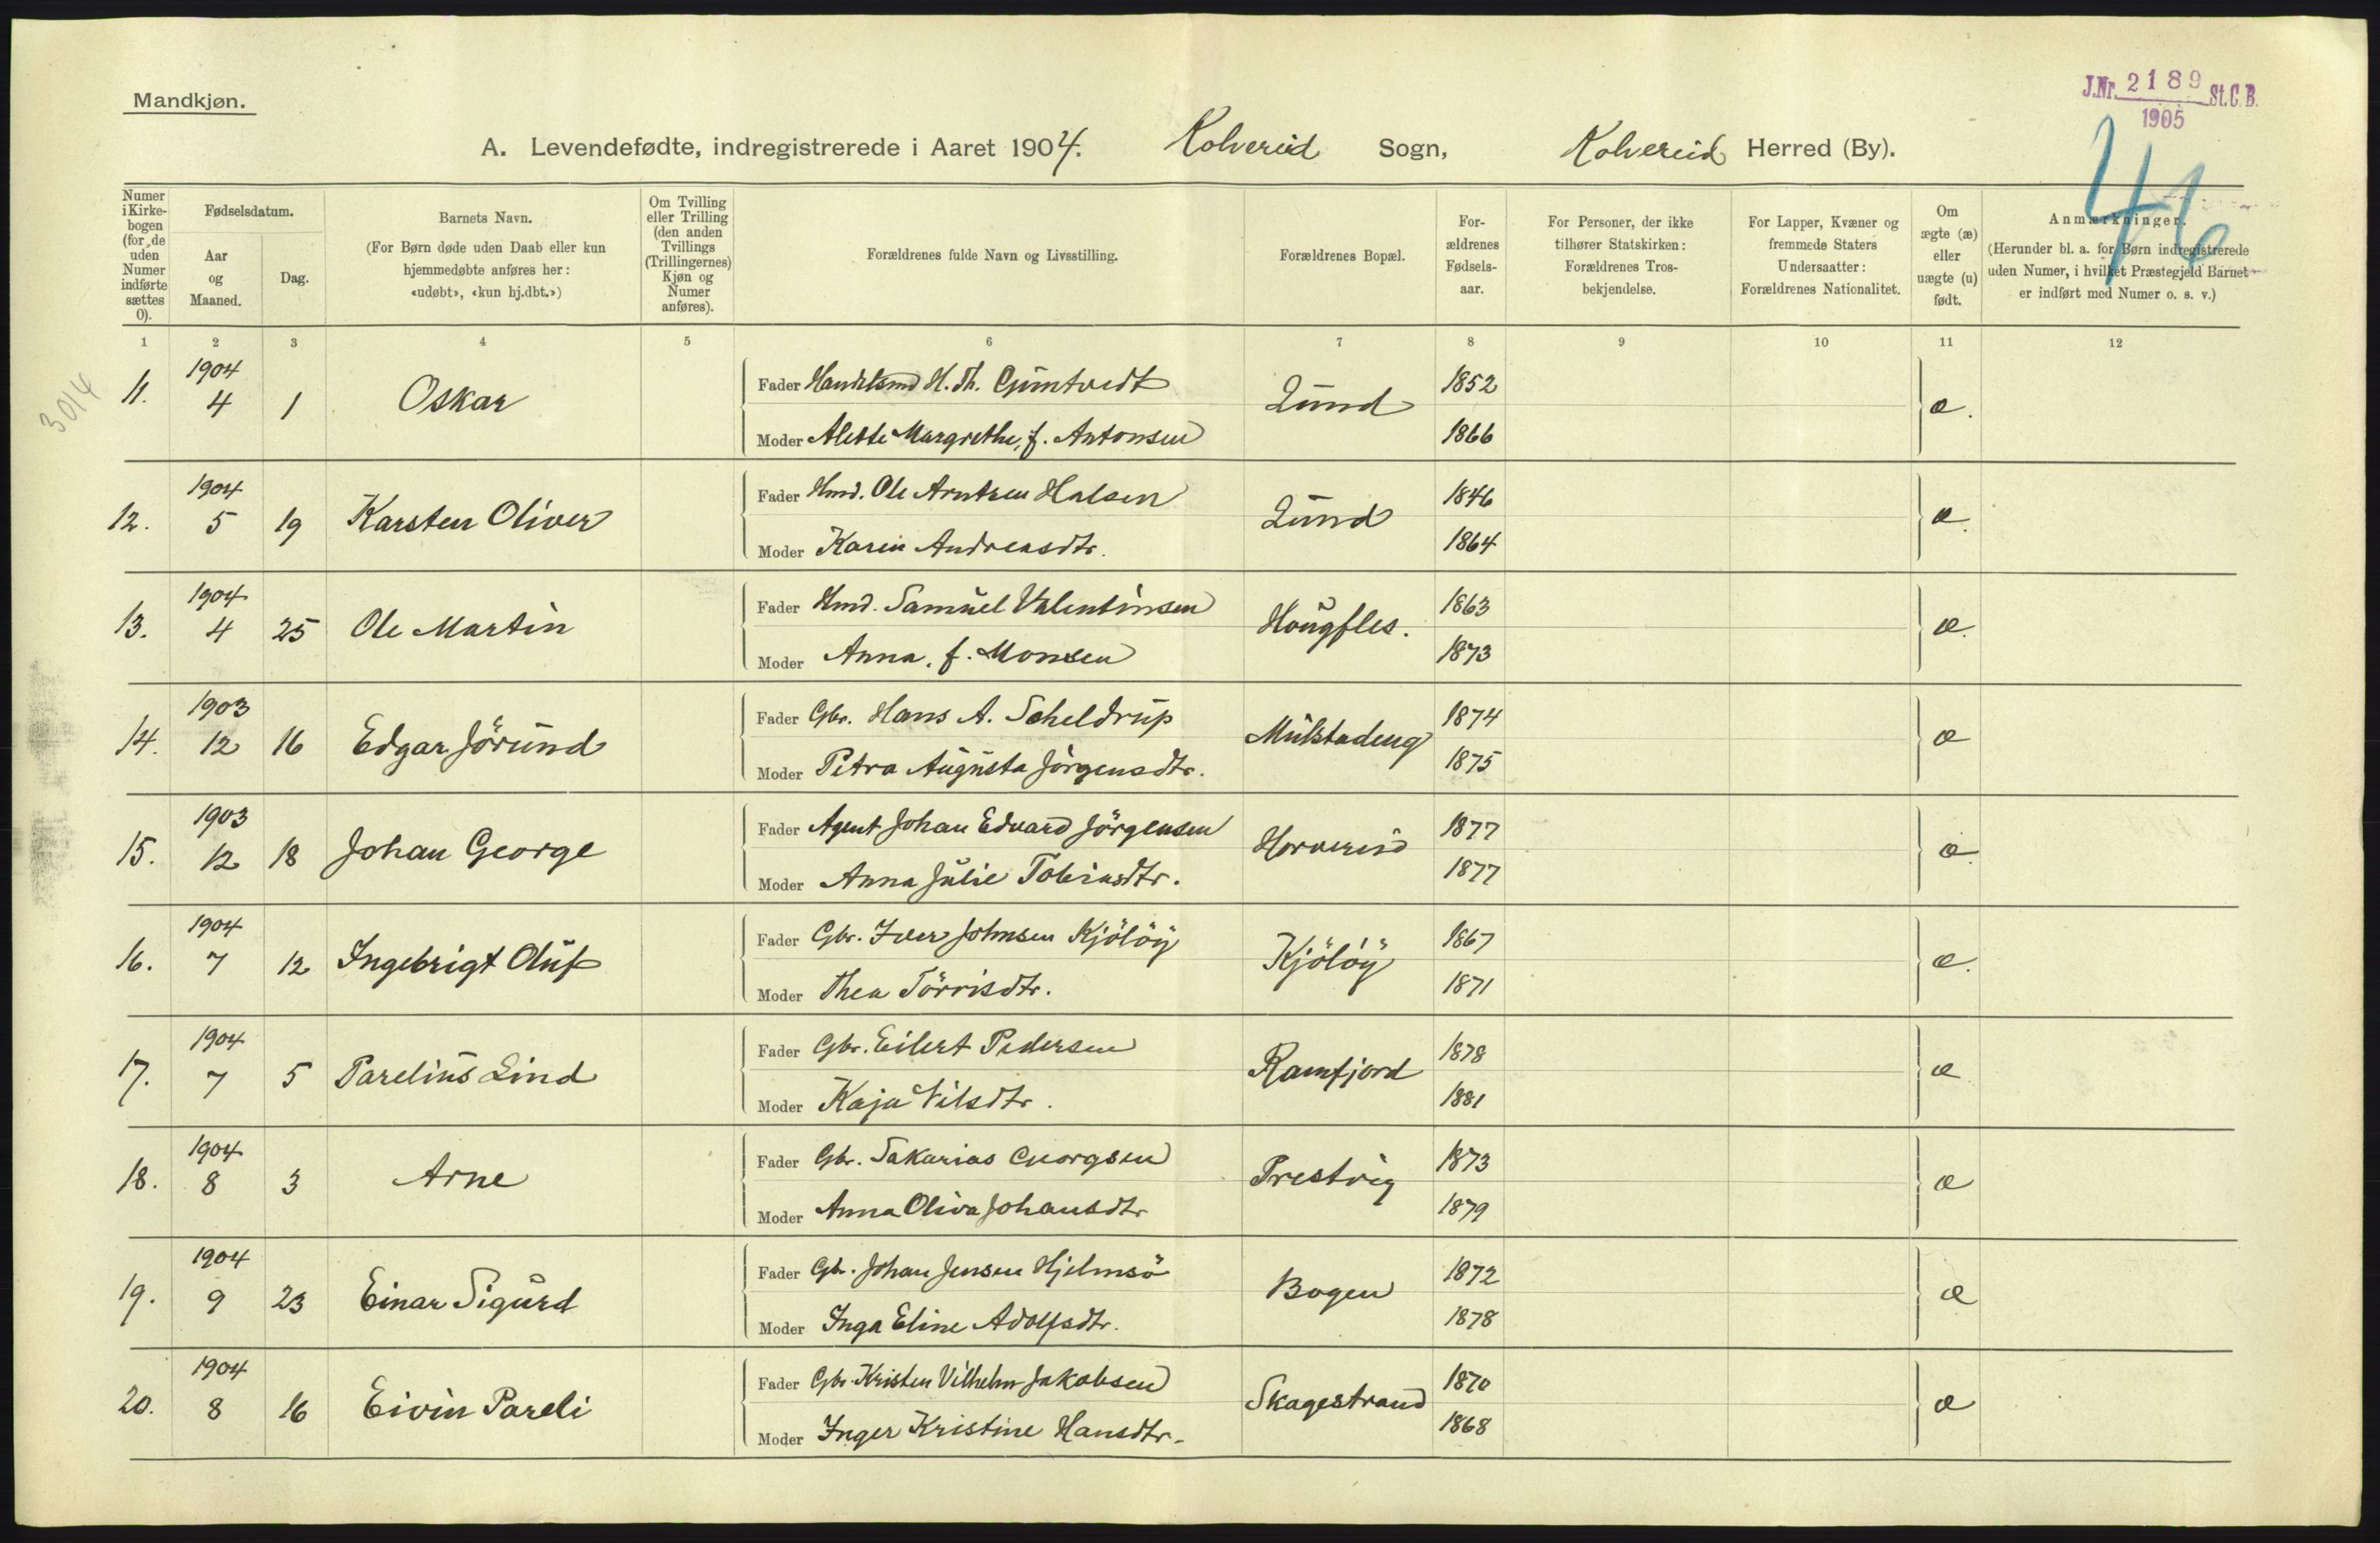 Mandkjøn.
J.Nr. 2189 St.C.B.
1905
A. Levendefødte, indregistrerede i Aaret 1904. Kolvereid Sogn, Kolvereid Herred (By).
46
Numer i Kirke-bogen (for de uden Numer indførte sættes 0).
Fødselsdatum.
Aar og Maaned.
Dag.
Barnets Navn.
(For Børn døde uden Daab eller kun hjemmedøbte anføres her: «udøbt», «kun hj.dbt.»)
Om Tvilling eller Trilling (den anden Tvillings (Trillingernes) Kjøn og Numer anføres).
Forældrenes fulde Navn og Livsstilling.
Forældrenes Bopæl.
For-ældrenes Fødsels-aar.
For Personer, der ikke tilhører Statskirken: Forældrenes Tros-bekjendelse.
For Lapper, Kvæner og fremmede Staters Undersaatter: Forældrenes Nationalitet.
Om ægte (æ) eller uægte (u) født.
Anmærkninger.
(Herunder bl. a. for Børn indregistrerede uden Numer, i hvilket Præstegjeld Barnet er indført med Numer o. s. v.)
1 2 3 4 5 6 7 8 9 10 11 12
3014
1904
11. 4 1 Oskar
Fader Handelsmd H. Th. Lund 1852
Moder Alette Margrethe, f. Antonsen 1866
æ.
1904
12. 5 19 Karsten Oliver
Fader Hmd. Ole Arntzen Halsen Lund 1846
Moder Karen Andreasdtr. 1864
æ.
1904
13. 4 25 Ole Martin
Fader Hmd. Samuel Valentinsen Hougfles. 1863
Moder Anna, f. Monsen 1873
æ.
1903
14. 12 16 Edgar Jörund
Fader Gbr. Hans A. Scheldrup Mulstadeng 1874
Moder Petra Augusta Jörgensdtr. 1875
æ
1903
15. 12 18 Johan George
Fader Agent Johan Edvard Jörgensen Horvereid 1877
Moder Anna Julie Tobiasdtr. 1877
æ.
1904
16. 7 12 Ingebrigt Oluf
Fader Gbr. Iver Johnsen Kjölöÿ Kjölöÿ 1867
Moder Thea Törrisdtr. 1871
æ.
1904
17. 7 5 Parelius Lind
Fader Gbr. Eilert Pedersen Ramfjord 1878
Moder Kaja Nilsdtr. 1881
æ
1904
18. 8 3 Arne
Fader Gbr. Sakarias Georgsen Prestvig 1873
Moder Anna Oliva Johansdtr 1879
æ
1904
19. 9 23 Einar Sigurd
Fader Gbr. Johan Jensen Hjelmsö Bogen 1872
Moder Inga Eline Adolfsdtr. 1878
æ
1904
20. 8 16 Eivin Pareli
Fader Gbr. Kristen Vilhelm Jakobsen Skagestrand 1870
Moder Inger Kristine Hansdtr. 1868
æ